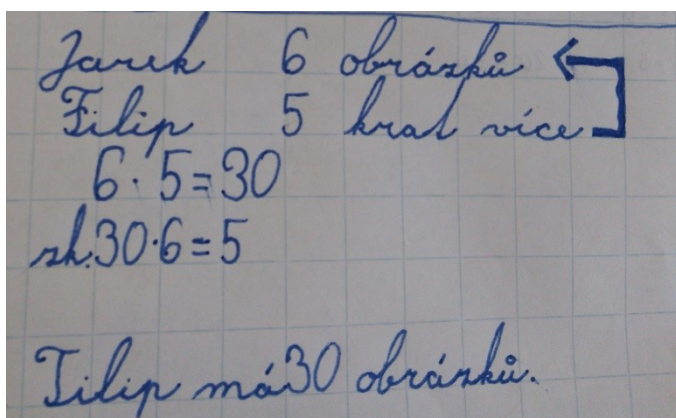 Jarek 6 obrázků
Filip 5 krat více
6·5=30
zk.30·6=5
Filip má 30 obrázků.